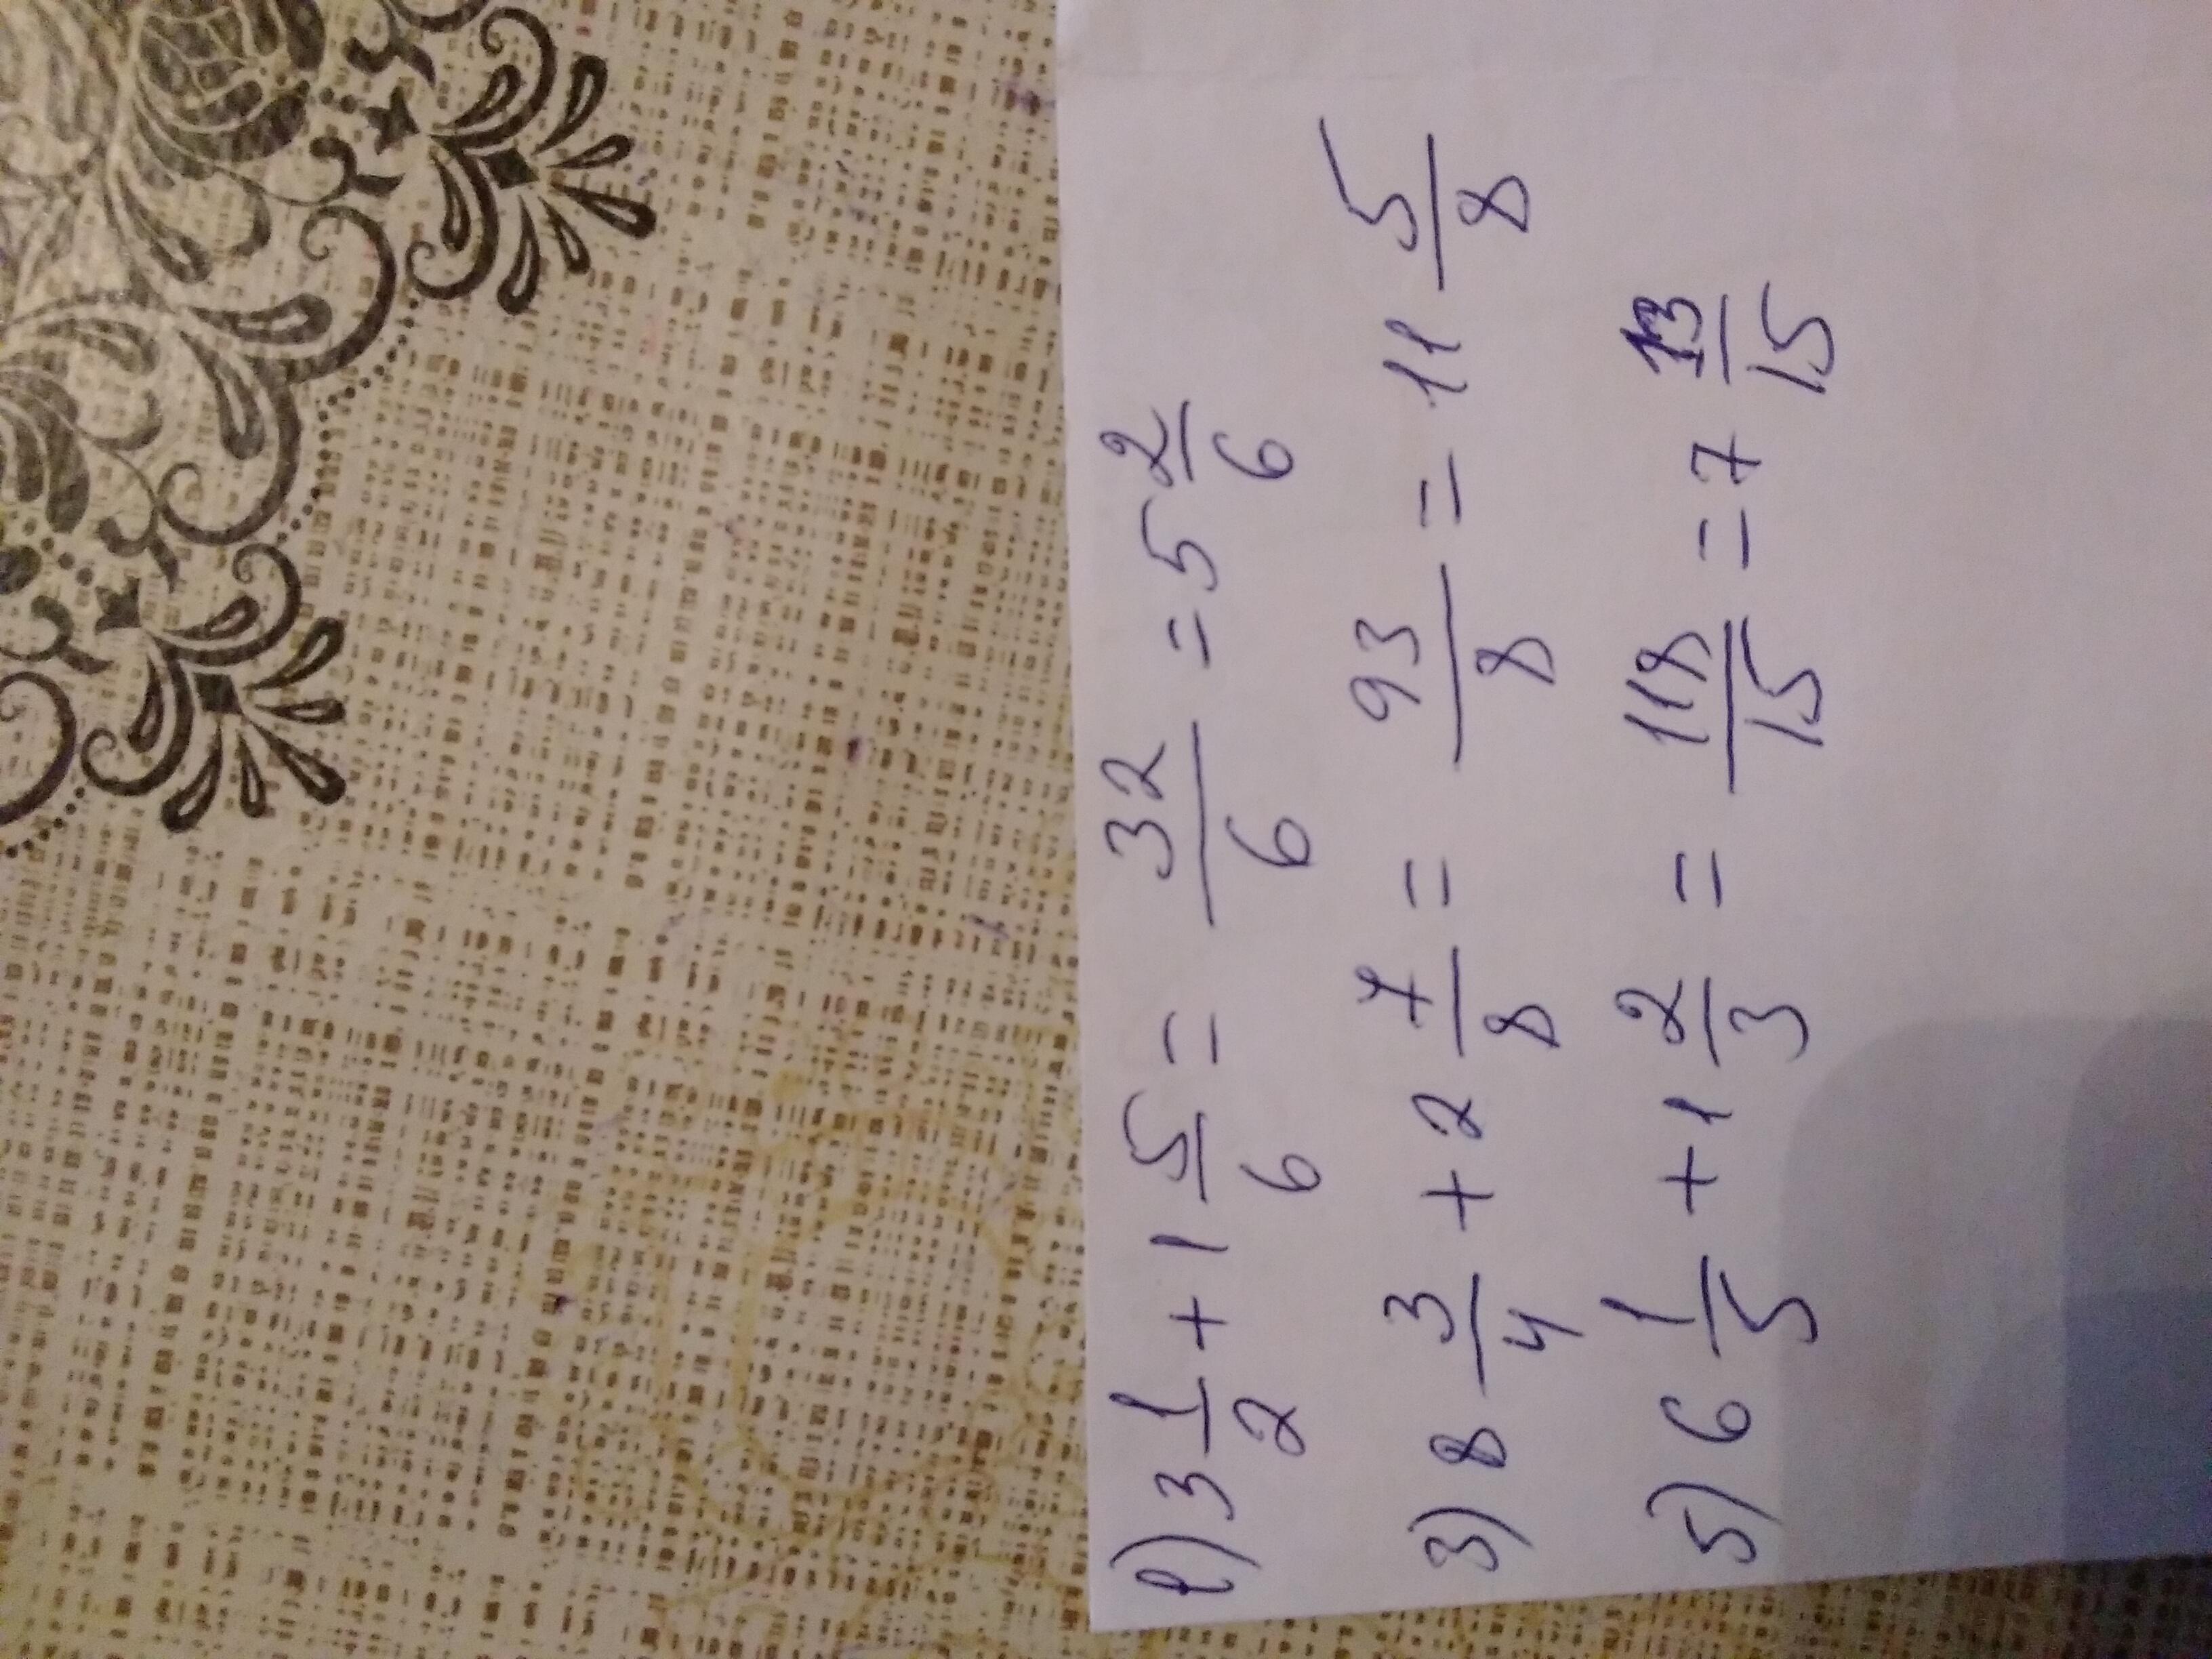 1) 3 1/2 + 1 5/6 = 32/6 = 5 2/6
3) 8 3/4 + 2 7/8 = 93/8 = 11 5/8
5) 6 1/5 + 1 2/3 = 118/15 = 7 13/15